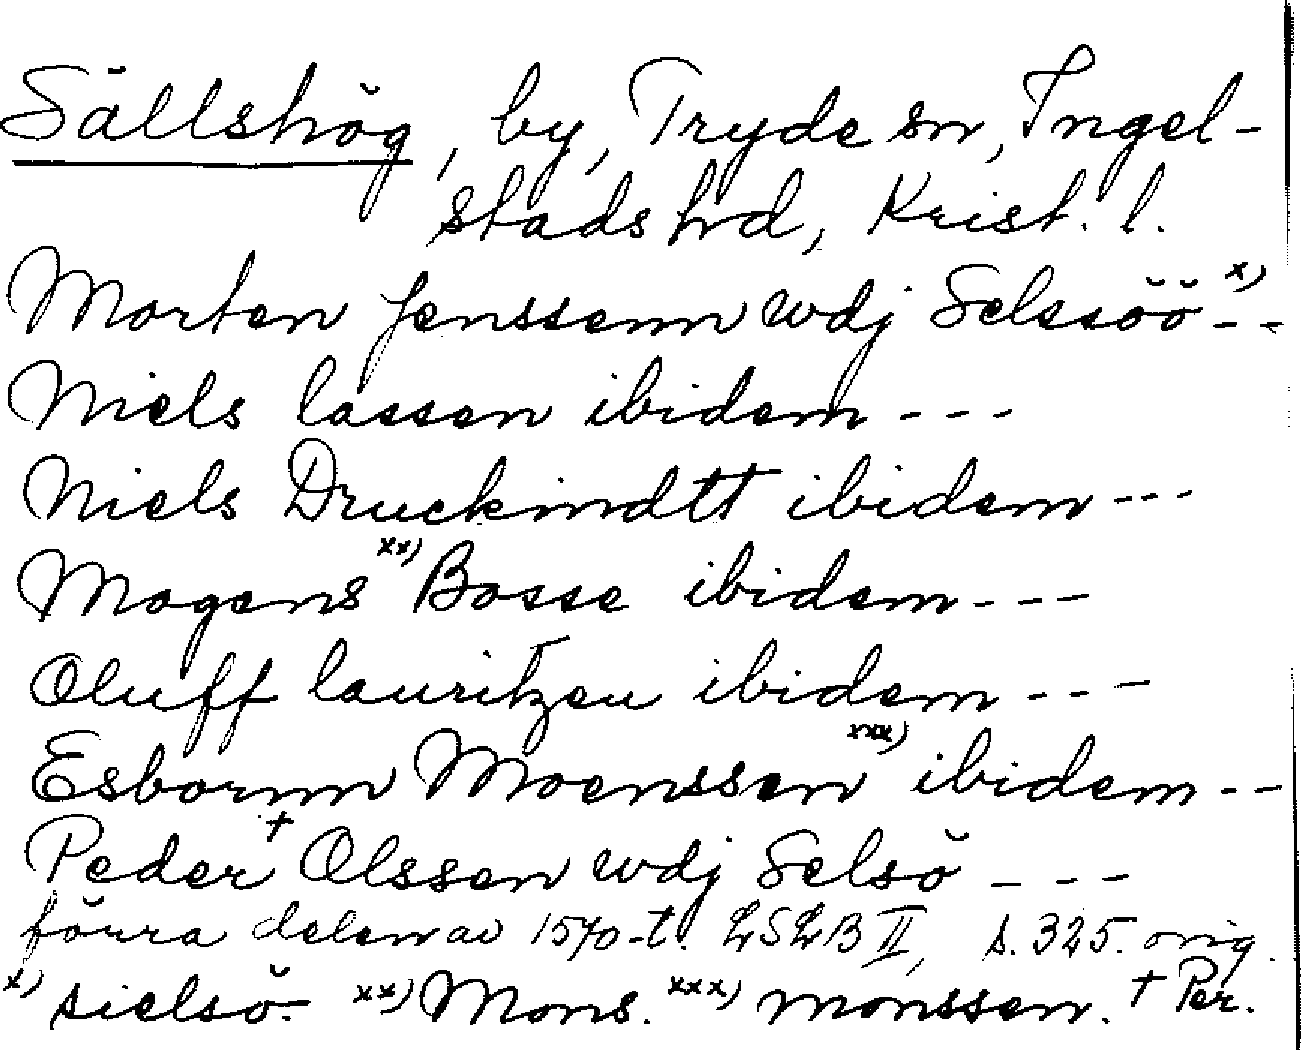 Sällshög, by, Tryde sn, Ingel-
stads hd, Krist. l.
Morten Jenssenn wdj Selssöö x) - -
Niels lassen ibidem - - -
Niels Druckindtt ibidem - - -
Mogens xx) Bosse ibidem - - -
Oluff lauritzen ibidem - - -
Esbornn Moenssen xxx) ibidem - -
Peder † Olssen wdj Selsö - - -
förra delen av 1570-t. LSLB II, s. 325. orig.
x) sielsö. xx) Mons. xxx) monssen. † Per.